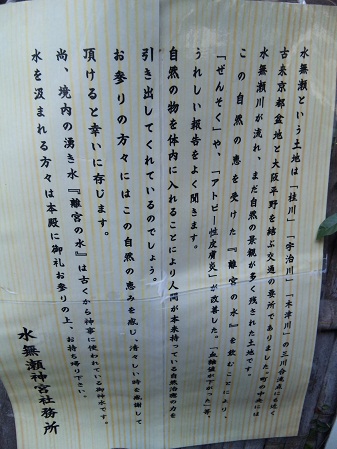 水無瀬という土地は「桂川」「宇治川」「木津川」の三川合流点にも近く
古来京都盆地と大阪平野を結ぶ交通の要所でありました。町の中央には
水無瀬川が流れ、まだ自然の景観が多く残された土地です。
この自然の恵を受けた『離宮の水』を飲むことにより、
「ぜんそく」や、「アトピー性皮膚炎」が改善した。「血糖値が下がった」等、
うれしい報告をよく聞きます。
自然の物を体内に入れることにより人間が本来持っている自然治癒の力を
引き出してくれているのでしょう。
お参りの方々にはこの自然の恵みを感じ、清々しい時を感謝して
頂けると幸いに存じます。
尚、境内の湧き水『離宮の水』は古くから神事に使われている御神水です。
水を汲まれる方々は本殿に御礼お参りの上、お持ち帰り下さい。
水無瀬神宮社務所